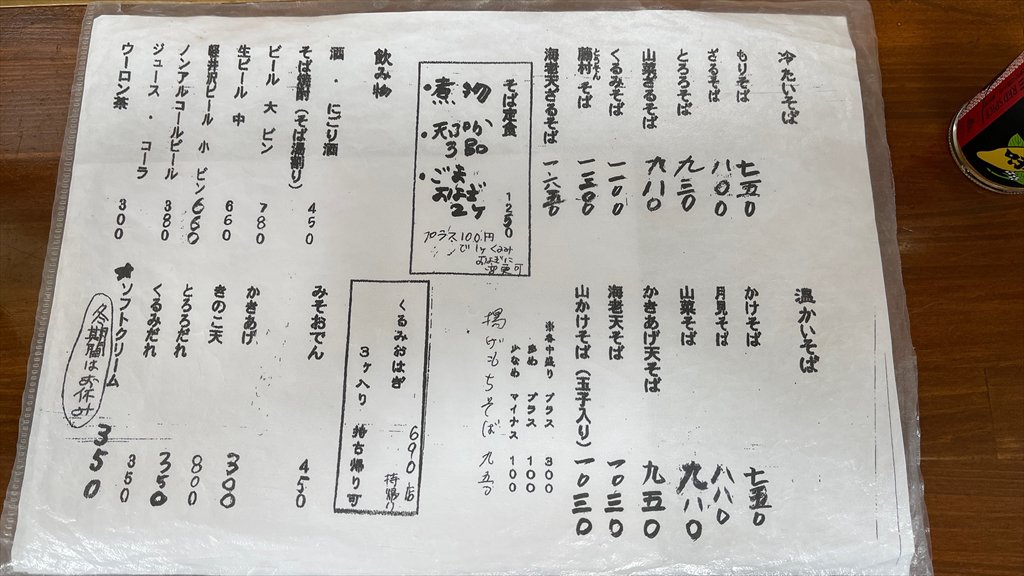 冷たいそば
もりそば 七五〇
ざるそば 八〇〇
とろろそば 九三〇
山菜ざるそば 九八〇
くるみそば 一一〇〇
藤村そば 一三〇〇
とうそん
海老天ざるそば 一六五〇
そば定食 1250
・煮物
・天ぷら
・ごま
おはぎ
2ヶ
プラス100円
でくるみ
おはぎに
変更可
飲み物
酒・にごり酒
そば焼酎(そば湯割り) 450
ビール 大ビン 780
生ビール 中 660
軽井沢ビール 小ビン 660
ノンアルコールビール 380
ジュース・コーラ
ウーロン茶 300
温かいそば
かけそば 七五〇
月見そば 八八〇
山菜そば 九八〇
かきあげ天そば 九五〇
海老天そば 一〇三〇
山かけそば(玉子入り) 一〇三〇
※各中盛り プラス 300
多め プラス 100
少なめ マイナス 100
揚げもちそば 九五〇
くるみおはぎ 690 店
3ヶ入り 持ち帰り可
持帰り
みそおでん 450
かきあげ
きのこ天 300
とろろだれ 800
くるみだれ 350
★ソフトクリーム 350
冬期間はお休み
350